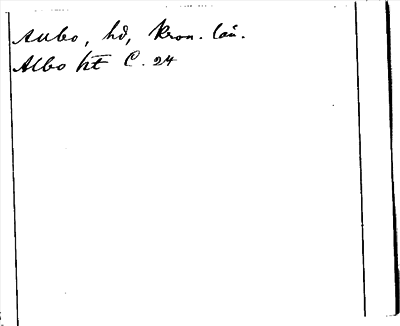 Albo, hd, Kron. län.
Albo ht C. 24